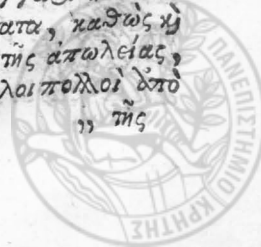 ατα, καθὼς κỳ
τῆς ἀπωλείας,
λοιπολλοὶ ἀπὸ
,, τῆς
ΠΑΝΕΠΙΣΤΗΜΙΟ ΚΡΗΤΗΣ